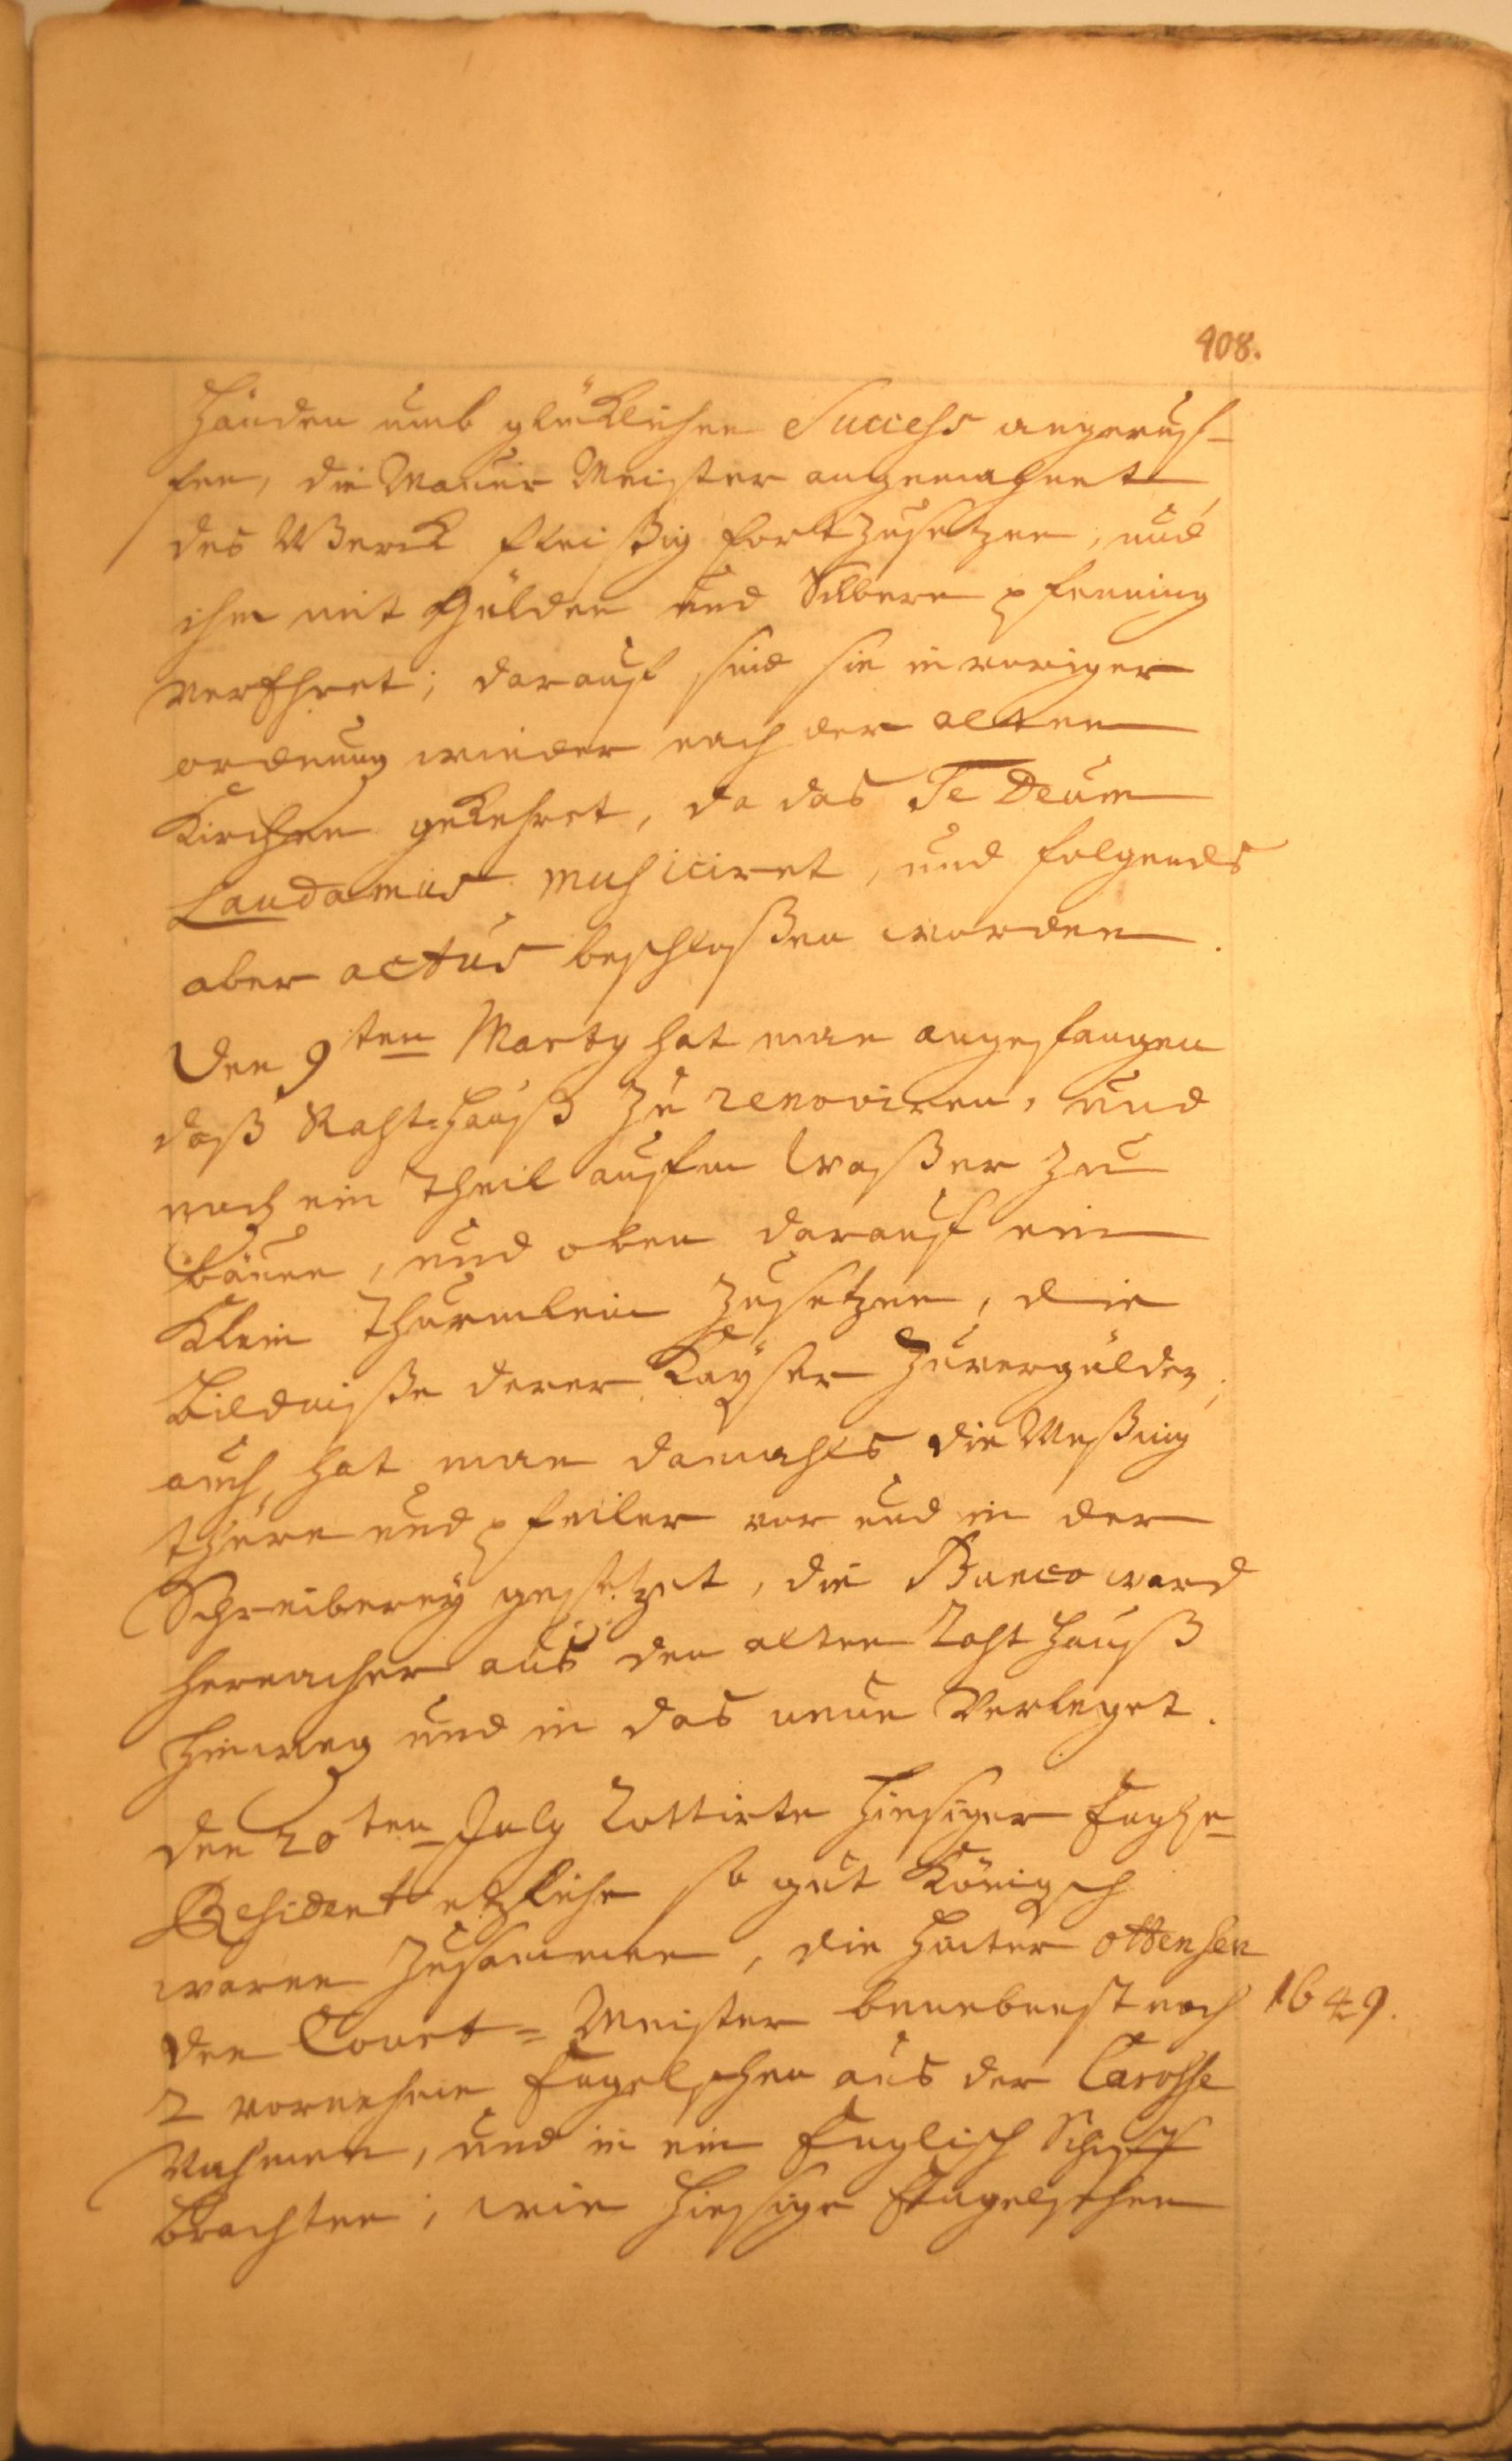 408.
Händen umb glücklichen Success angeruf-
fen, die Mauer Meister angemahnet
des Werck fleißig fortzusetzen, und
ihn mit Gülden und Silbern pfenning
verehret; darauf sind sie in voriger
ordnung wieder nach der alten
Kirchen gekehret, da das Te Deum
Laudamus musiciret, und folgends
aber actus beschloßen worden.
Den 9ten Marty hat man angefangen
daß Raht-Hauß zu renoviren, und
noch ein Theil aufm Waßer zu
bauen, und oben darauf ein
Klein Thürmlein zusetzen, die
bildniße derer Kayser zuvergülden,
auch hat man damahls die Meßing
thüre und pfeiler vor und in der
Schreiberey gesetzet, die Banco ward
hernacher aus den alten Raht Hauß
hinweg und in das neue Verleget.
den 20ten July Rottirte hiesiger Englse
Resident etzliche so gut Königsch
waren zusammen, die hinter Ottensen
den Court-Meister benebenst noch
1649.
2 vornehme Engelschen aus der Carosse
Nahmen, und in ein Englisch Schiff
brachten; wie hiesige Engelschen